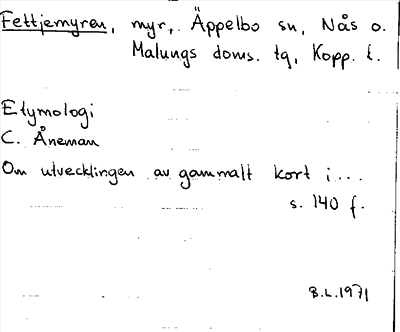 Fettjemyren, myr, Äppelbo sn, Nås o.
Malungs doms. tg, Kopp. l.
Etymologi
C. Åneman
Om utvecklingen av gammalt kort i...
s. 140 f.
B.L. 1971